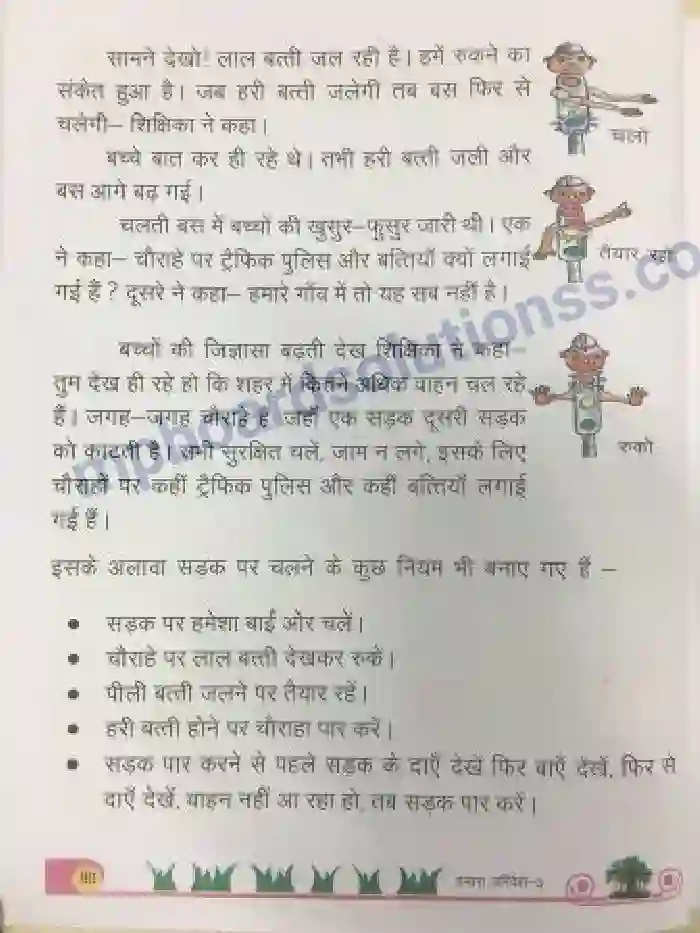 सामने देखो! लाल बत्ती जल रही है। हमें रुकने का
संकेत हुआ है। जब हरी बत्ती जलेगी तब बस फिर से
चलेगी– शिक्षिका ने कहा।
चलो
बच्चे बात कर ही रहे थे। तभी हरी बत्ती जली और
बस आगे बढ़ गई।
चलती बस में बच्चों की खुसुर–फुसुर जारी थी। एक
ने कहा– चौराहे पर ट्रैफिक पुलिस और बत्तियाँ क्यों लगाई
गई हैं ? दूसरे ने कहा– हमारे गाँव में तो यह सब नहीं है।
तैयार रहो
बच्चों की जिज्ञासा बढ़ती देख शिक्षिका ने कहा–
तुम देख ही रहे हो कि शहर में कितने अधिक वाहन चल रहे
हैं। जगह–जगह चौराहे हैं जहाँ एक सड़क दूसरी सड़क
को काटती है। सभी सुरक्षित चलें, जाम न लगे, इसके लिए
चौराहों पर कहीं ट्रैफिक पुलिस और कहीं बत्तियाँ लगाई
गई हैं।
रुको
इसके अलावा सड़क पर चलने के कुछ नियम भी बनाए गए हैं –
● सड़क पर हमेशा बाईं ओर चलें।
● चौराहे पर लाल बत्ती देखकर रुकें।
● पीली बत्ती जलने पर तैयार रहें।
● हरी बत्ती होने पर चौराहा पार करें।
● सड़क पार करने से पहले सड़क के दाएँ देखें फिर बाएँ देखें, फिर से
दाएँ देखें, वाहन नहीं आ रहा हो, तब सड़क पार करें।
mpboardsolutionss.co